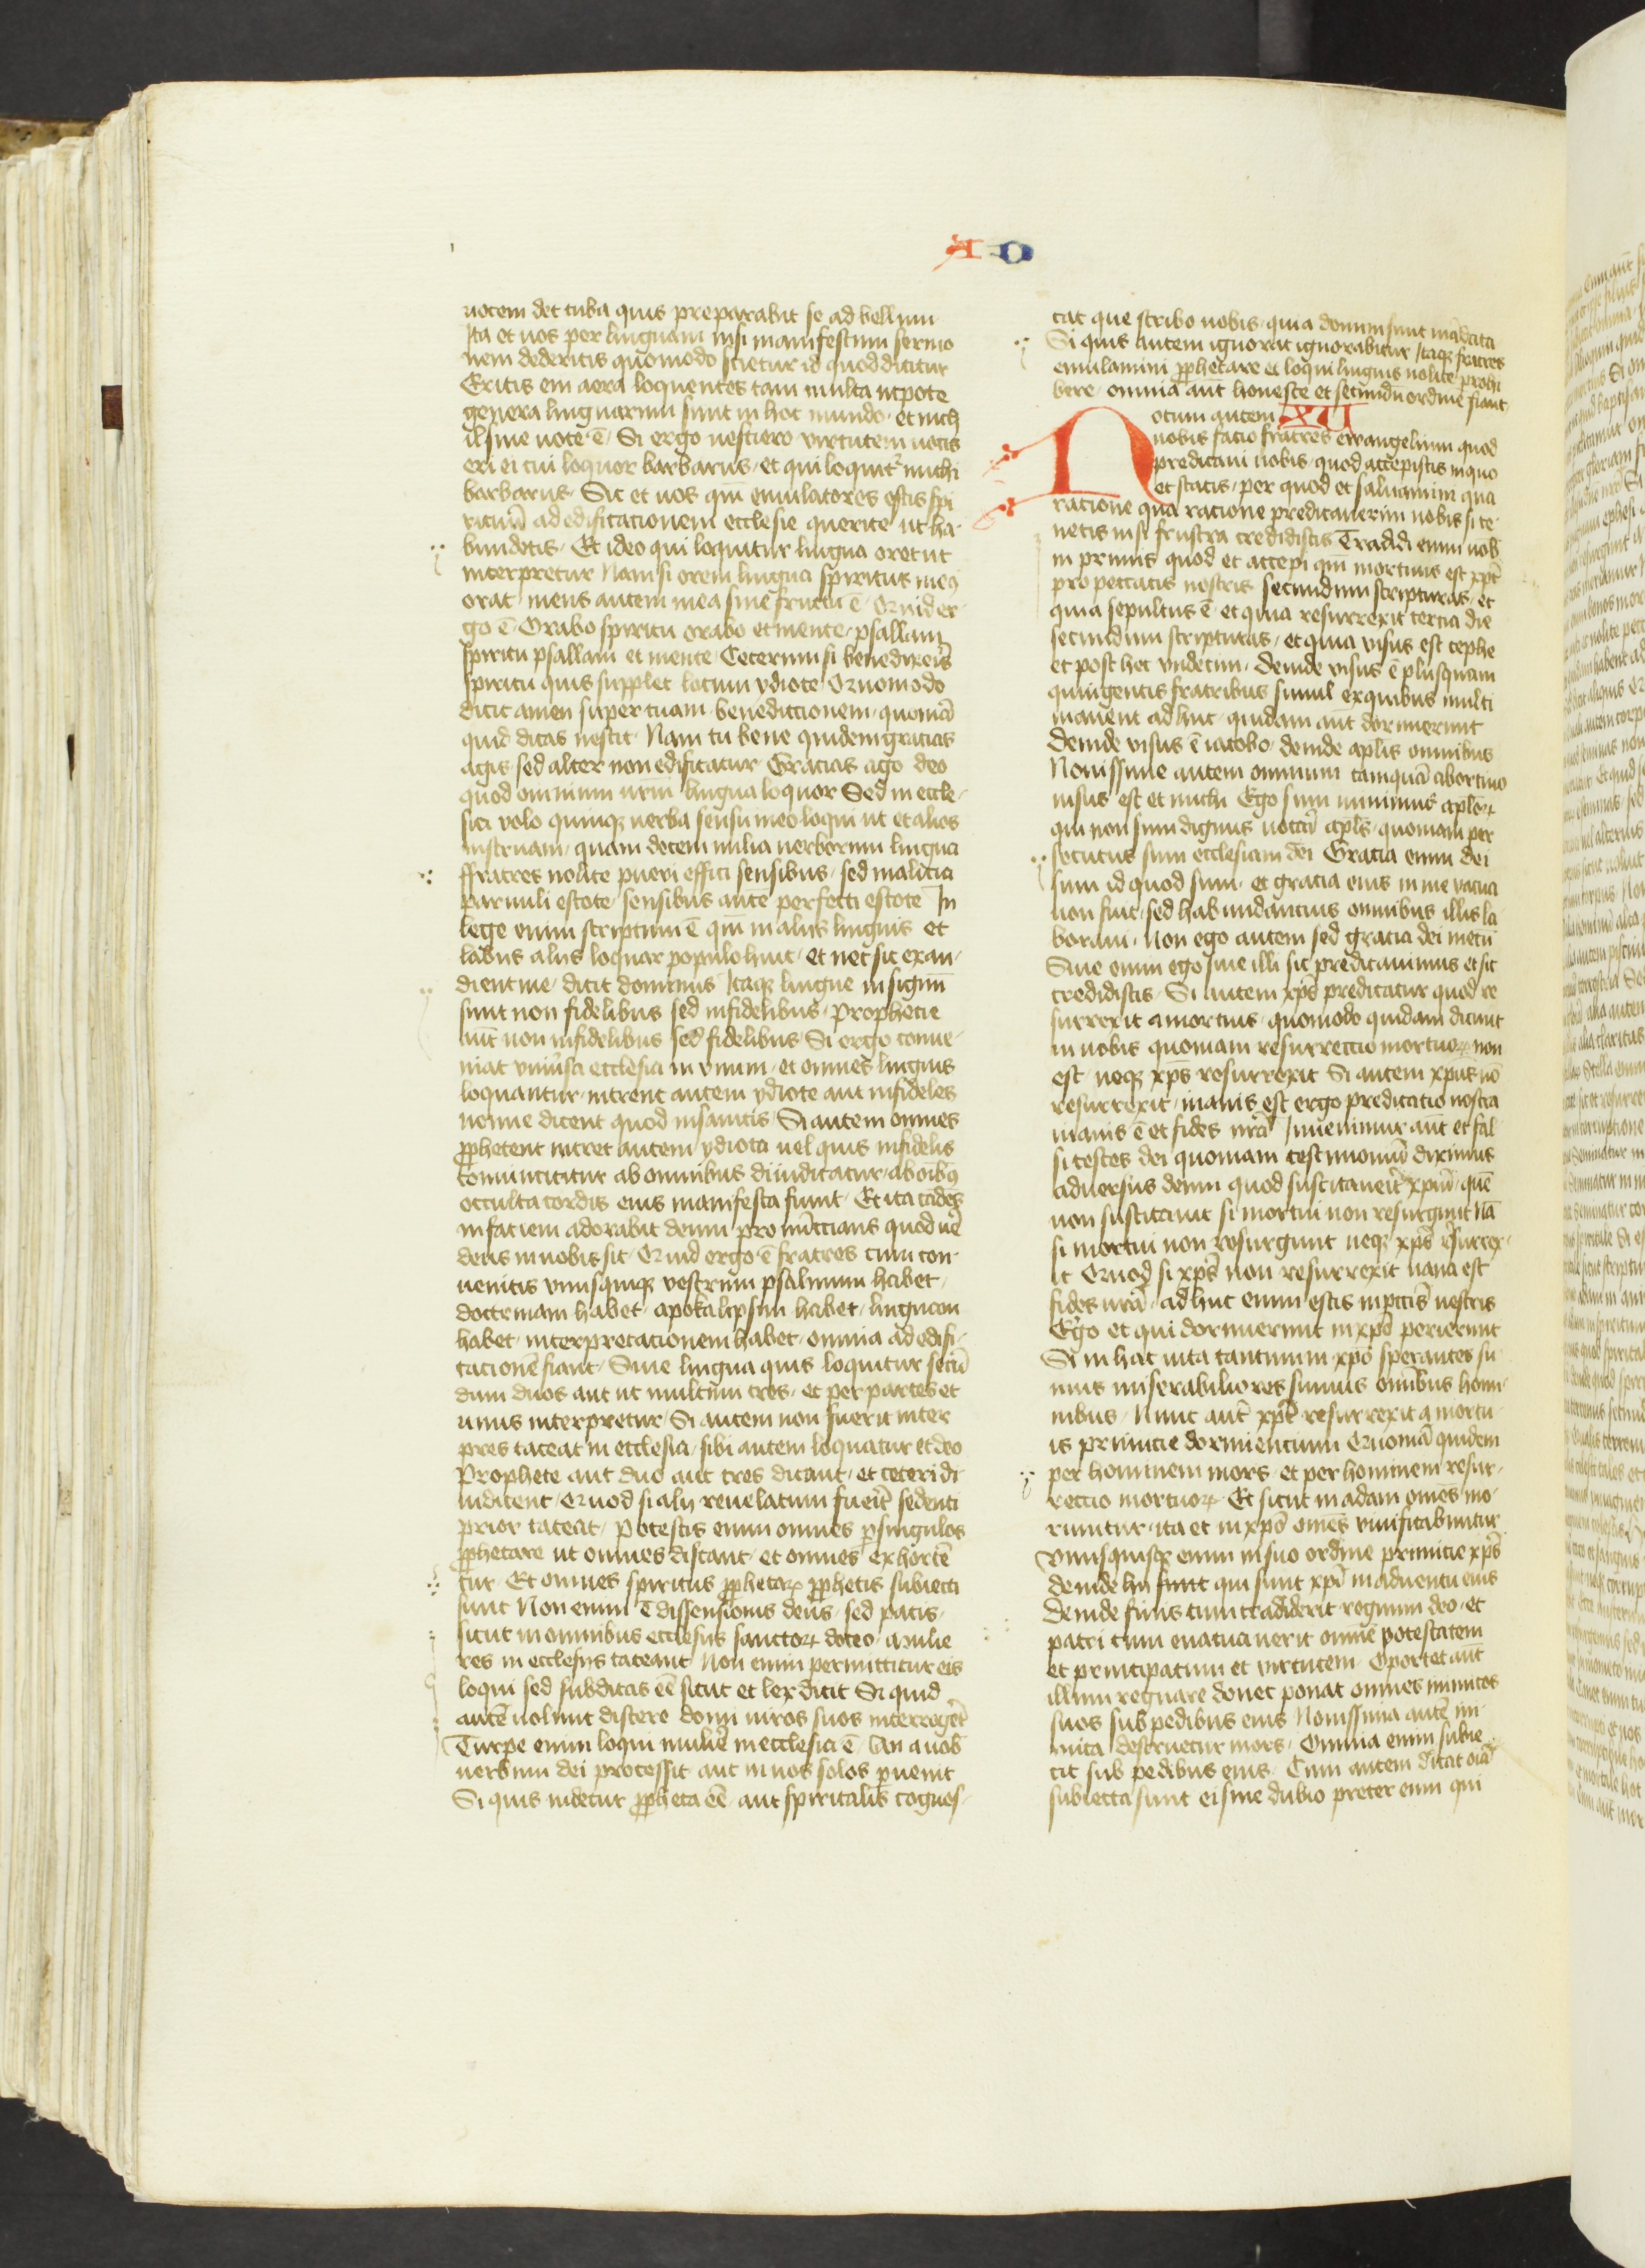 A D
uocem det tuba quis preparabit se ad bellum
Ita et uos per linguam nisi manifestum sermo
nem dederitis quomodo scietur id quod dicitur
Eritis em aera loquentes tam multa utpote
genera linguarum sunt in hoc mundo · et nich
il sine uoce ē · Si ergo nesciero virtutem uocis
ero ei cui loquor barbarus · et qui loquit᷑ michi
barbarus · Sic et uos qm̄ emulatores estis spi
rituū ad edificationem ecclesie querite ut ha-
bundetis · Et ideo qui loquitur lingua oret ut
interpretur Nam si orem lingua spiritus meꝰ
orat · mens autem mea sine fructu ē · Quid er-
go ē · Orabo spiritu orabo et mente · psallam
spiritu psallam et mente · Ceterum si benedixeis̄
spiritu quis supplet locum ydiote Quomodo
dicit amen super tuam benedictionem · quoniā
quid dicas nescit · Nam tu bene quidem gracias
agis sed alter non edificatur Gracias ago deo
quod omnium urm̄ lingua loquor Sed in eccle-
sia volo quinqꝫ uerba sensu meo loqui ut et alios
instruam · quam decem milia uerborum lingua
ffratres nolite pueri effici sensibus · sed malicia
paruuli estote · sensibus autē perfecti estote In
lege enim scriptum ē qm̄ in alijs linguis et
labijs alijs loquar populo huic · et nec sic exau-
dient me · dicit dominus Itaqꝫ lingue in signū
sunt non fidelibus sed infidelibus · Prophecie
aut̄ non infidelibus sed fidelibus Si ergo conue-
niat vniūsa ecclesia in vnum · et omnes linguis
loquantur · intrent autem ydiote aut infideles
nonne dicent quod insanitis Si autem omnes
ꝓphetent intret autem ydiota uel quis infidelis
conuincitur ab omnibus diiudicatur ab oībꝰ
occulta cordis eius manifesta fiunt · Et ita cadēs
in faciem adorabit deum pronūccians quod uē
deus in uobis sit · Quid ergo ē fratres cum con-
uenitis vnusquisqꝫ vestrum psalmum habet ·
doctrinam habet · apokalipsim habet · linguam
habet · interpretacionem habet · omnia ad edifi-
cacionē fiant · Siue lingua quis loquitur secū
dum duos aut ut multum tres · et per partes et
unus interpretur · Si autem non fuerit inter
pres taceat in ecclesia · sibi autem loquatur et deo
Prophete aut duo aut tres dicant · et ceteri di
iudicent · Quod si alij reuelatum fueit̄ sedenti
prior taceat · Potestis enim omnes ꝑ singulos
ꝓphetare ut omnes discant · et omnes exhortē
tur · Et omnes spiritus ꝓphetaꝝ ꝓphetis subiecti
sunt Non enim ē dissensionis deus · sed pacis ·
sicut in omnibus ecclesijs sanctoꝝ doceo · Mulie
res in ecclesijs taceant Non enim permittitur eis
loqui sed subditas eē sicut et lex dicit Si quid
autē uolunt discere domi uiros suos interrogēt
Turpe enim loqui mulieī in ecclesia ē · An a uob̄
uerbum dei processit aut in uos solos ꝑuenit
Si quis uidetur ꝓpheta eē · aut spiritalis cognos-
cat que scribo uobis · quia domini sunt mādata
Si quis autem ignorat ignorabitur Itaqꝫ fratres
emulamini ꝓphetare et loqui linguis nolite prohi
bere · omnia aut̄ honeste et secundū ordinē fiant
Notum autem XV
uobis facio fratres ewangelium quod
predicaui uobis · quod accepistis in quo
et statis · per quod et saluamini qua
racione qua racione predicauerim uobis si te-
netis nisi frustra credidistis Tradidi enim uob̄
in primis quod et accepi qm̄ mortuus est xpc̄
pro peccatis nostris secundum scripturas · et
quia sepultus ē et quia resurrexit tercia die
secundum scripturas · et quia visus est cephe
et post hec vndecim · Deinde visus ē plusquam
quingentis fratribus simul ex quibus multi
manent adhuc · quidam aut̄ dormierunt
Deinde visus ē iacobo · deinde aplis omnibus
Nouissime autem omnium tamquā abortiuo
uisus est et michi Ego sum minimus aploꝝ
qui non sum dignus uocari apls̄ · quoniam per
secutus sum ecclesiam dei Gratia enim dei
sum id quod sum · et gracia eius in me vacua
non fuit · sed habundancius omnibus illis la
boraui · Non ego autem sed gracia dei mecū
Siue enim ego siue illi sic predicauimus et sic
credidistis · Si autem xps̄ predicatur quod re
surrexit a mortuis · quomodo quidam dicunt
in uobis quoniam resurrectio mortuoꝝ non
est · neqꝫ xps̄ resurrexit Si autem xpūs nō
resurrexit · inanis est ergo predicatio nostra
inanis ē et fides nrā Inuenimur aut̄ et fal
si testes dei quoniam testimoniū diximus
aduersus deum quod suscitaueit̄ xpm̄ · quē
non suscitauit si mortui non resurgunt Nā
si mortui non resurgunt neqꝫ xps̄ resurrex-
it Quod si xps̄ non resurrexit uana est
fides urā · adhuc enim estis in pccīs uestris
Ergo et qui dormierunt in xpō perierunt
Si in hac uita tantum in xpō sperantes su
mus miserabiliores sumus omībus homi-
nibus · Nunc aut̄ xpc̄ resurrexit a mortu
is primicie dormiencium Quoniā quidem
per hominem mors · et per hominem resur-
rectio mortuoꝝ Et sicut in adam omēs mo-
riuntur · ita et in xpō omēs viuificabuntur
Vnusquisqꝫ enim in suo ordine primicie xps̄
deinde hii sunt qui sunt xpī in aduentu eius
Deinde finis cum tradiderit regnum deo · et
patri cum euacuauerit omnē potestatem
et principatum et virtutem · Oportet aut̄
illum regnare donec ponat omnes inimicos
suos sub pedibus eius Nouissima autē ini-
mica destruetur mors · Omnia enim subie-
cit sub pedibus eius · Cum autem dicat oīa
subiecta sunt ei sine dubio preter eum qui